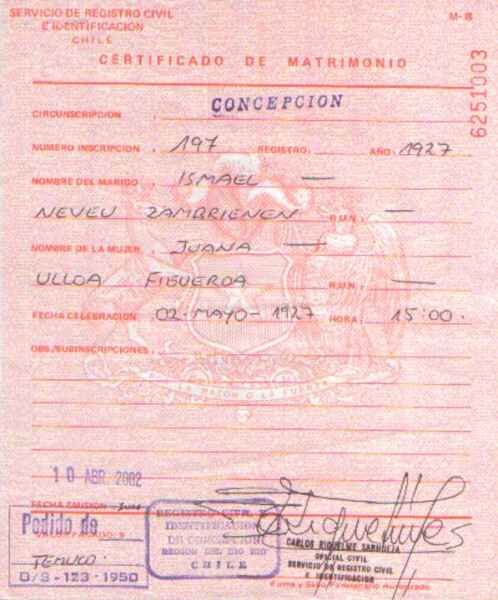 SERVICIO DE REGISTRO CIVIL
E IDENTIFICACION
CHILE
M-8
CERTIFICADO DE MATRIMONIO
6251003
CIRCUNSCRIPCION : CONCEPCION
NUMERO INSCRIPCION : 197 REGISTRO: AÑO: 1927
NOMBRE DEL MARIDO : ISMAEL —
NEVEU ZAMBRIENEN R.U.N.: —
NOMBRE DE LA MUJER : JUANA —
ULLOA FIGUEROA R.U.N.: —
FECHA CELEBRACION : 02-MAYO-1927 HORA: 15:00.
OBS./SUBINSCRIPCIONES :
POR LA RAZON O LA FUERZA
10 ABR. 2002
FECHA EMISION
Pedido de
TEMUCO.
O/S-123-1950
REGISTRO CIVIL E
IDENTIFICACION
DE CONCEPCION
REGION DEL BIO BIO
CHILE
CARLOS RIQUELME SANHUEZA
OFICIAL CIVIL
SERVICIO DE REGISTRO CIVIL
E IDENTIFICACION
Firma y Sello Funcionario Autorizado